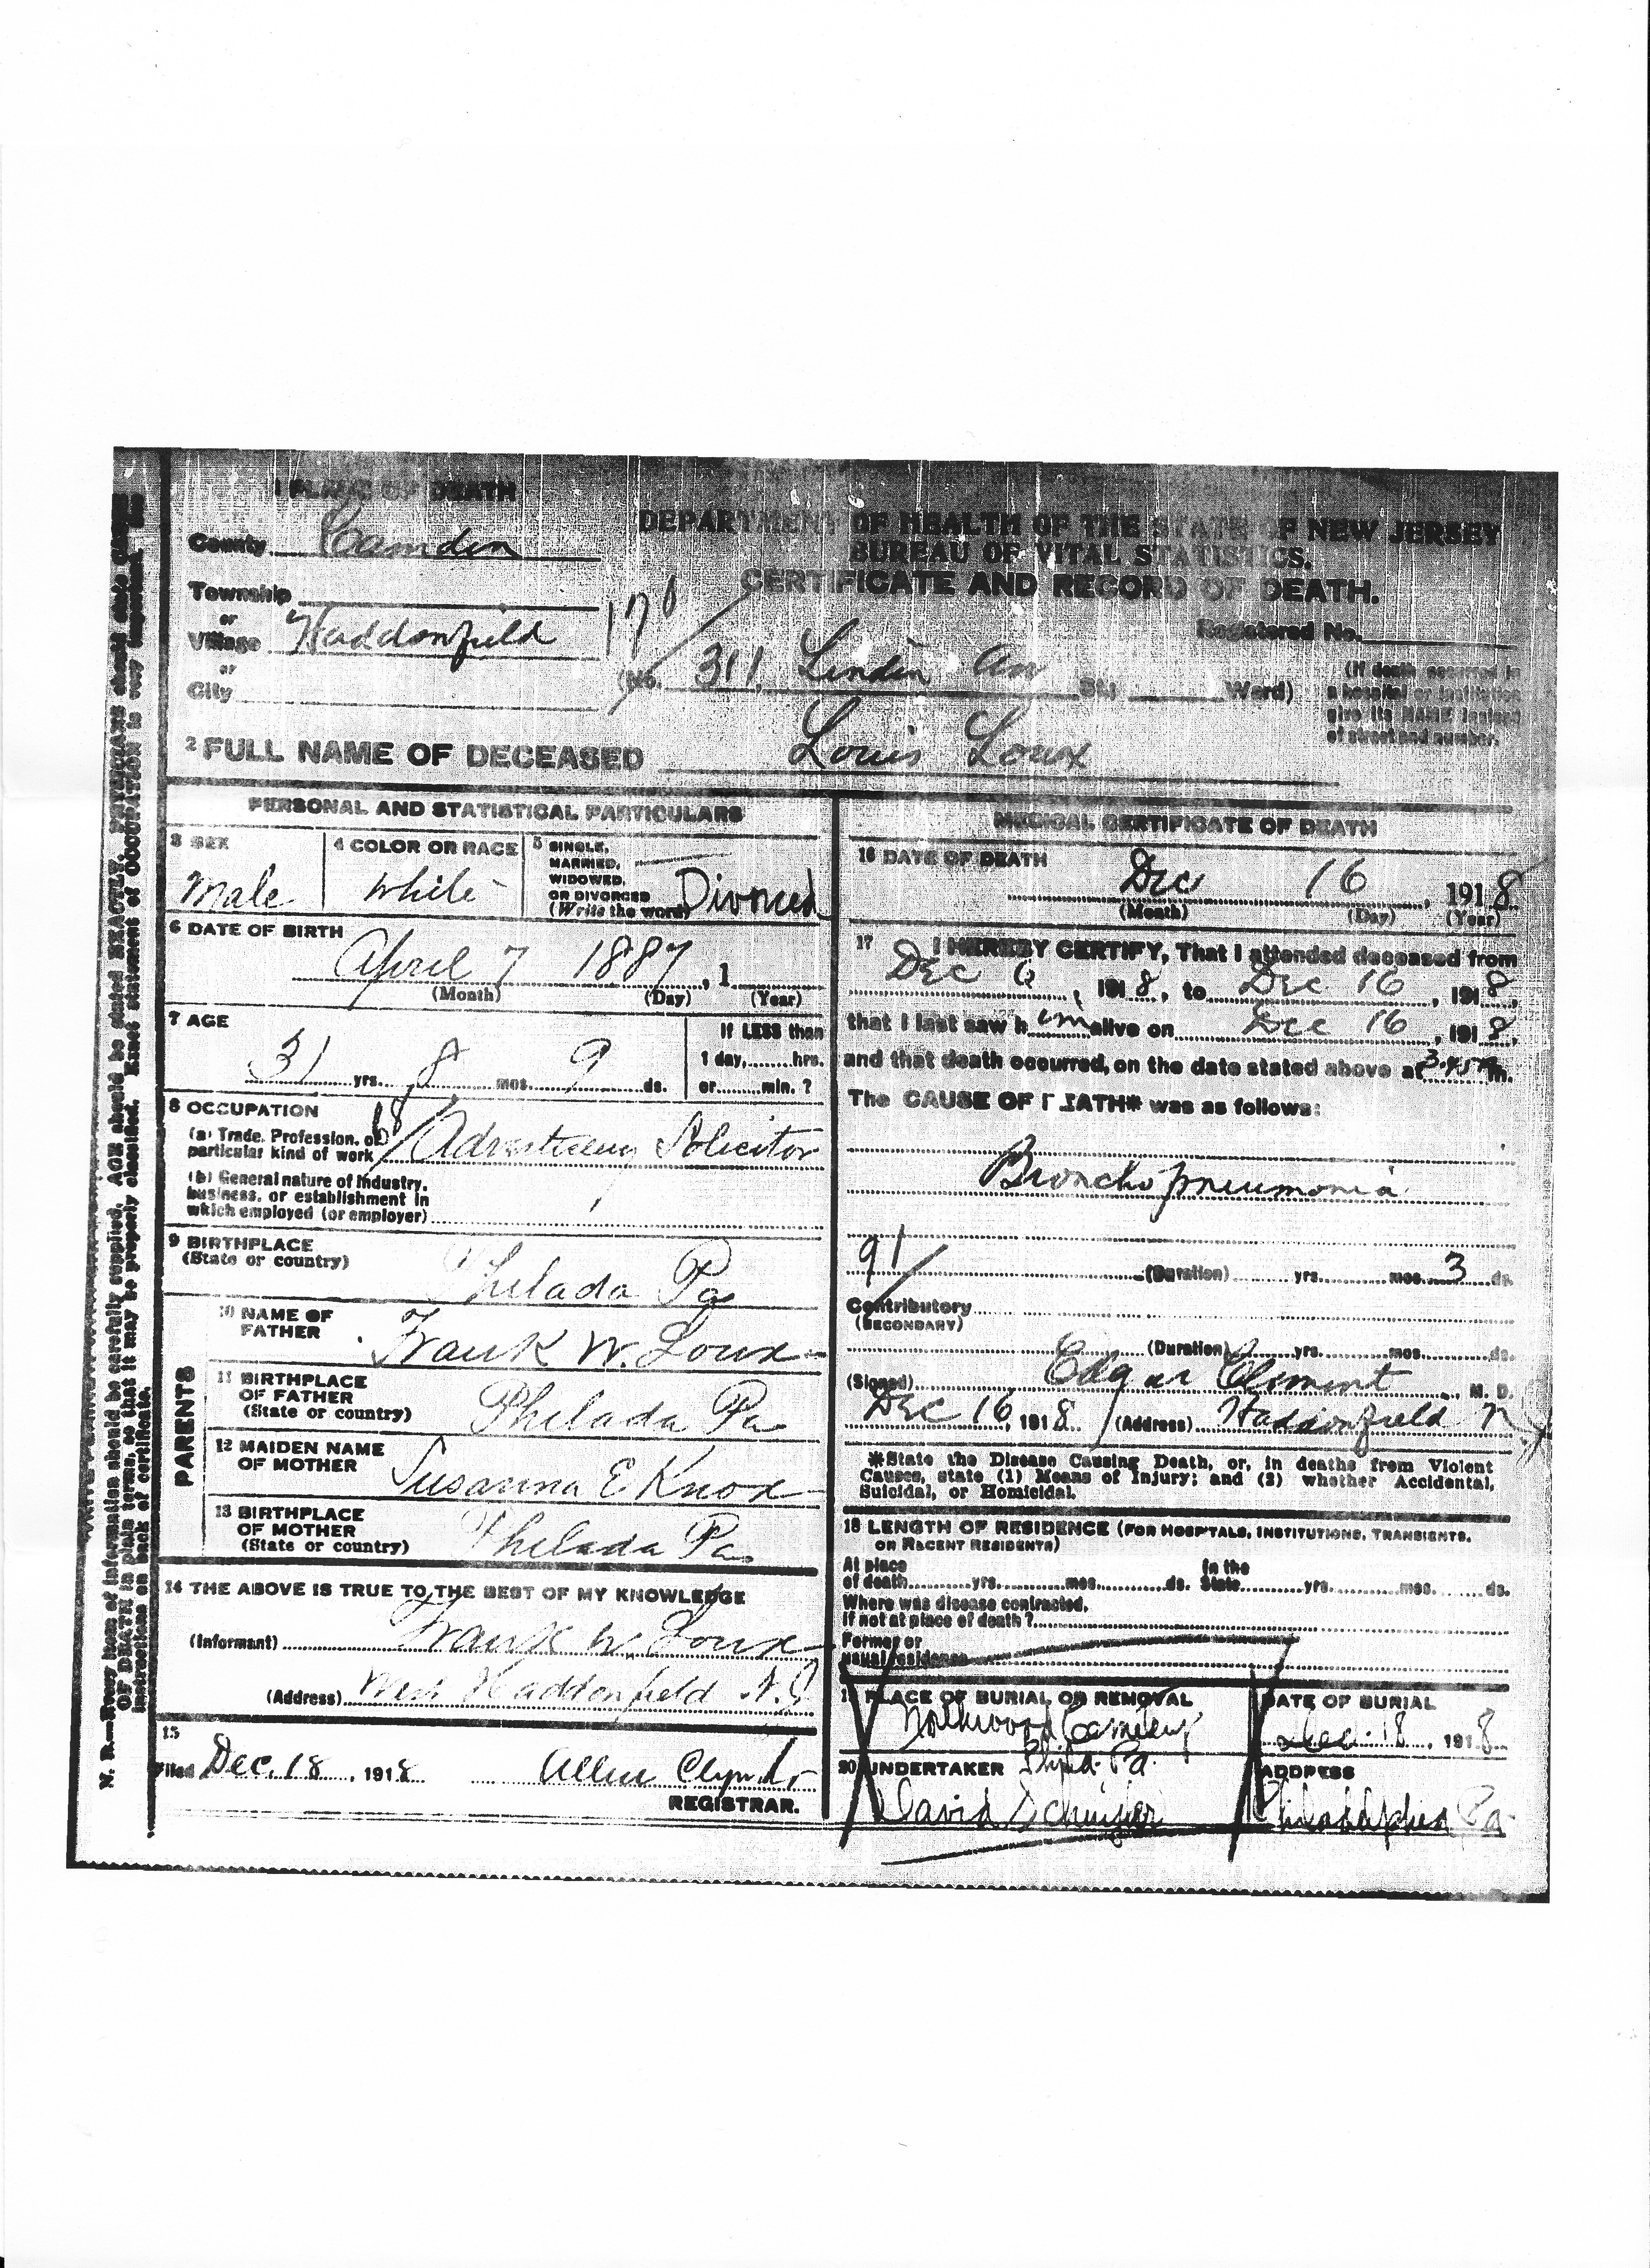 1 PLACE OF DEATH
County Camden
Township
or
Village Haddonfield
or
City
DEPARTMENT OF HEALTH OF THE STATE OF NEW JERSEY
BUREAU OF VITAL STATISTICS.
CERTIFICATE AND RECORD OF DEATH.
170
Registered No.
(No. 311, Linden Av St.; Ward)
(If death occurred in
a hospital or institution
give its NAME instead
of street and number.
2 FULL NAME OF DECEASED Louis Loux
PERSONAL AND STATISTICAL PARTICULARS
3 SEX
Male
4 COLOR OR RACE
White
5 SINGLE,
MARRIED,
WIDOWED,
OR DIVORCED
(Write the word) Divorced
6 DATE OF BIRTH
April 7 1887, 1
(Month) (Day) (Year)
7 AGE
31 yrs. 8 mos. 9 ds.
If LESS than
1 day,......hrs.
or......min. ?
8 OCCUPATION
(a) Trade, Profession, or
particular kind of work 68 Advertising Solicitor
(b) General nature of Industry,
business, or establishment in
which employed (or employer)
9 BIRTHPLACE
(State or country) Philada Pa
PARENTS
10 NAME OF
FATHER Frank W. Loux
11 BIRTHPLACE
OF FATHER
(State or country) Philada Pa
12 MAIDEN NAME
OF MOTHER Susanna E Knox
13 BIRTHPLACE
OF MOTHER
(State or country) Philada Pa
14 THE ABOVE IS TRUE TO THE BEST OF MY KNOWLEDGE
(Informant) Frank W. Loux
(Address) Haddonfield N.J.
15
Filed Dec. 18, 1918
REGISTRAR.
MEDICAL CERTIFICATE OF DEATH
16 DATE OF DEATH
Dec 16, 1918
(Month) (Day) (Year)
17 I HEREBY CERTIFY, That I attended deceased from
Dec 6, 1918, to Dec 16, 1918,
that I last saw him alive on Dec 16, 1918,
and that death occurred, on the date stated above at 3.45 m.
The CAUSE OF DEATH* was as follows:
Broncho pneumonia
91
(Duration) yrs. mos. 3 ds.
Contributory
(SECONDARY)
(Duration) yrs. mos. ds.
(Signed) Edgar Clement, M. D.
Dec 16, 1918 (Address) Haddonfield N
*State the Disease Causing Death, or, in deaths from Violent
Causes, state (1) Means of Injury; and (2) whether Accidental,
Suicidal, or Homicidal.
18 LENGTH OF RESIDENCE (FOR HOSPITALS, INSTITUTIONS, TRANSIENTS,
OR RECENT RESIDENTS)
At place
of death......yrs......mos......ds.
In the
State......yrs......mos......ds.
Where was disease contracted,
If not at place of death?
Former or
usual residence
19 PLACE OF BURIAL OR REMOVAL
Northwood Cemetery
Phila. Pa.
DATE OF BURIAL
Dec 18, 1918
20 UNDERTAKER
David
ADDRESS
Philadelphia Pa.
N. B.—Every item of information should be carefully supplied. AGE should be stated EXACTLY. PHYSICIANS should state CAUSE
OF DEATH in plain terms, so that it may be properly classified. Exact statement of OCCUPATION is very important. See
instructions on back of certificate.